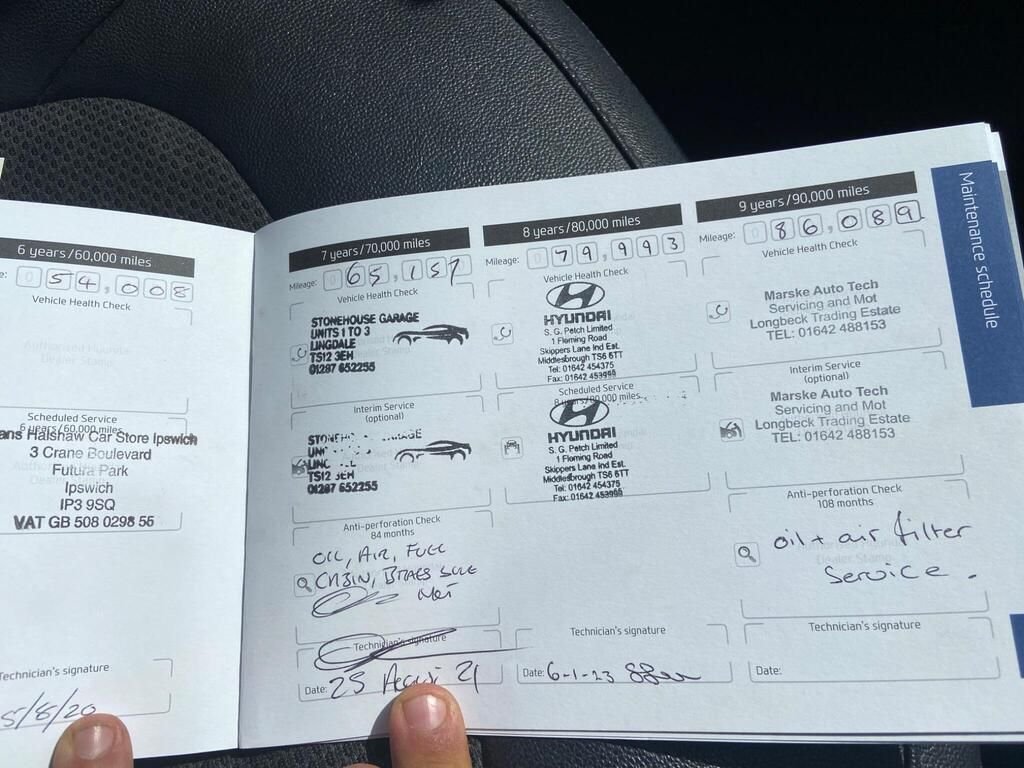 6 years/60,000 miles
054,008
Vehicle Health Check
Scheduled Service
6 years/60,000 miles
ans Halshaw Car Store Ipswich
3 Crane Boulevard
Futura Park
Ipswich
IP3 9SQ
VAT GB 508 0298 55
Technician's signature
5/8/20
7 years/70,000 miles
Mileage: 065,157
Vehicle Health Check
STONEHOUSE GARAGE
UNITS 1 TO 3
LINGDALE
TS12 3EH
01287 652255
Interim Service
(optional)
TS12 3EH
01287 652255
Anti-perforation Check
84 months
OIL, AIR, FUEL
CABIN,
Technician's signature
Date: 25 21
8 years/80,000 miles
Mileage: 079,993
Vehicle Health Check
HYUNDAI
S. G. Petch Limited
1 Fleming Road
Skippers Lane Ind Est.
Middlesbrough TS6 6TT
Tel: 01642 454375
Fax: 01642 453999
Scheduled Service
8 years/80,000 miles
HYUNDAI
S. G. Petch Limited
1 Fleming Road
Skippers Lane Ind Est.
Middlesbrough TS6 6TT
Tel: 01642 454375
Fax: 01642 453999
Technician's signature
Date: 6-1-23
9 years/90,000 miles
Mileage: 086,089
Vehicle Health Check
Marske Auto Tech
Servicing and Mot
Longbeck Trading Estate
TEL: 01642 488153
Interim Service
(optional)
Marske Auto Tech
Servicing and Mot
Longbeck Trading Estate
TEL: 01642 488153
Anti-perforation Check
108 months
oil + air filter
Service.
Technician's signature
Date:
Maintenance schedule